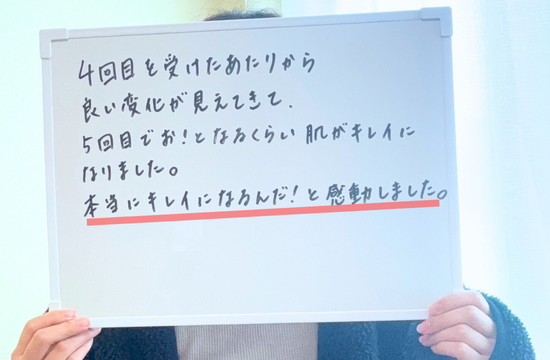 4回目を受けたあたりから
良い変化が見えてきて、
5回目でお!となるくらい肌がキレイに
なりました。
本当にキレイになるんだ!と感動しました。